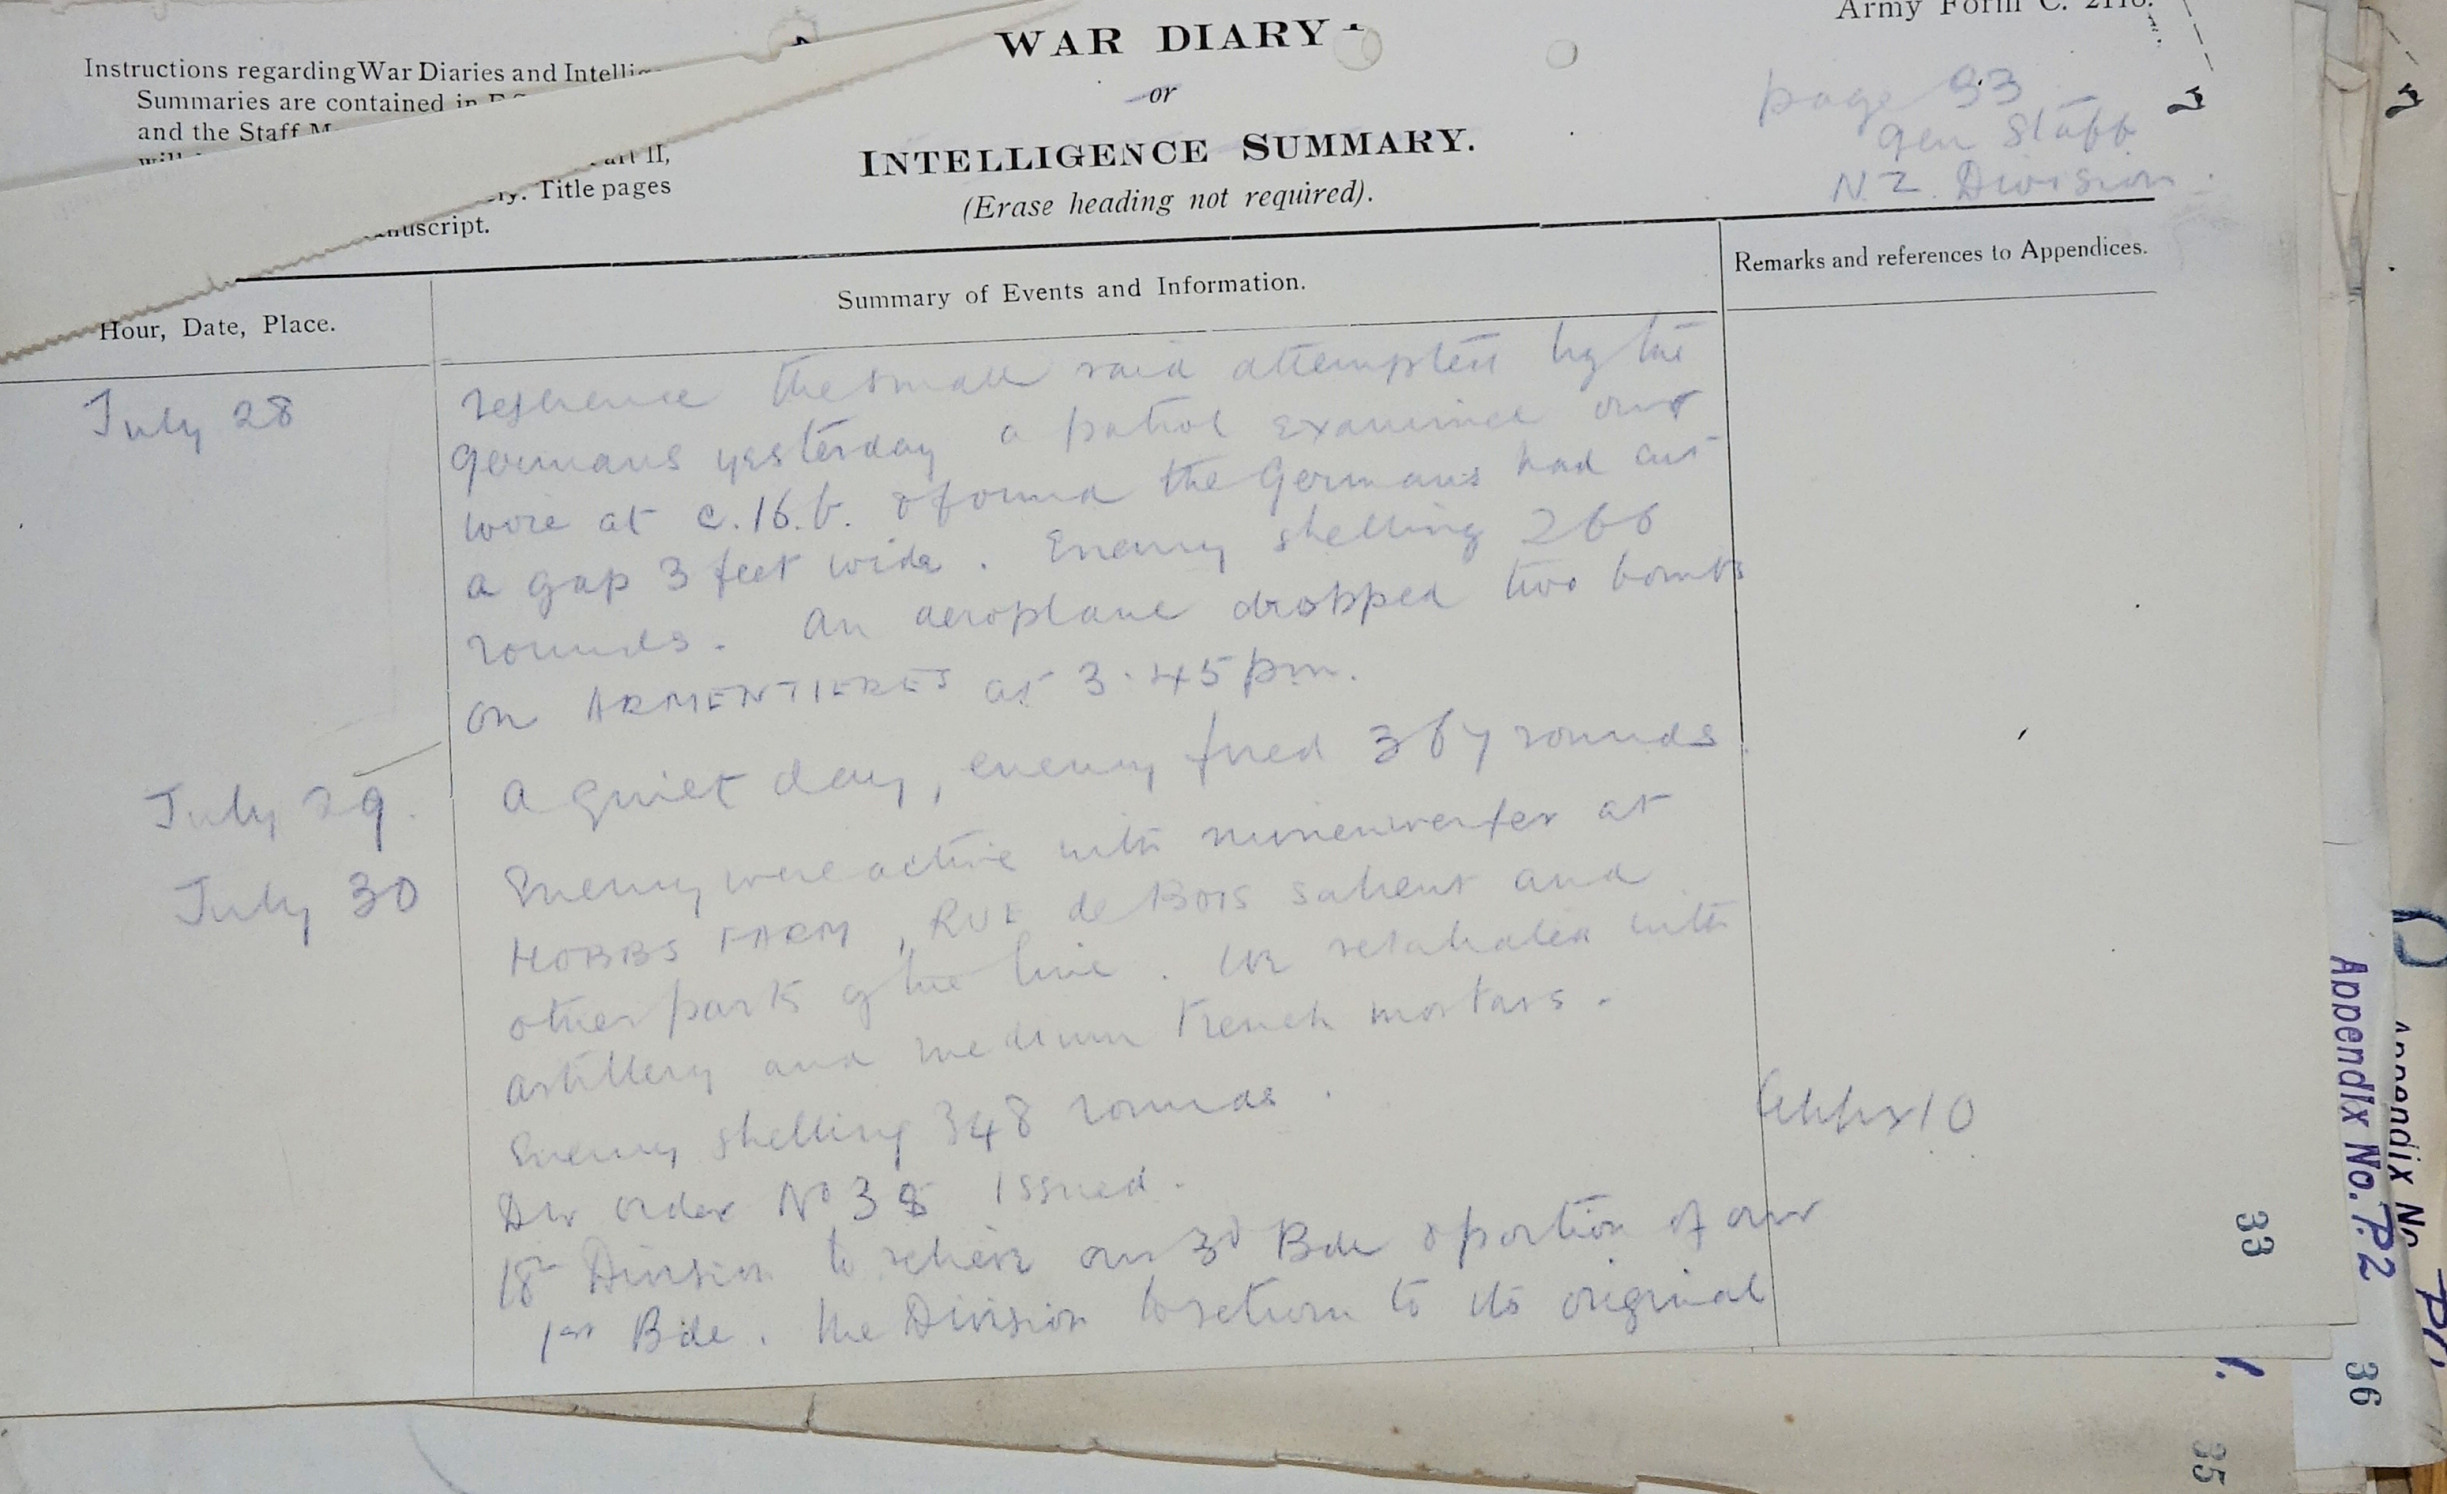 Army Form C. 2118.
WAR DIARY
or
INTELLIGENCE SUMMARY.
(Erase heading not required).
Instructions regarding War Diaries and
Summaries are contained in
and the Staff
Part II,
Title pages
manuscript.
page 33
Gen Staff
N.Z. Division
Hour, Date, Place.
Summary of Events and Information.
Remarks and references to Appendices.
July 28
reference the small raid attempted by the
Germans yesterday a patrol examined our
wire at c.16.b. & found the Germans had cut
a gap 3 feet wide. Enemy shelling 266
rounds. An aeroplane dropped two bombs
on ARMENTIERES at 3.45 pm.
July 29.
A quiet day, enemy fired 367 rounds
July 30
Enemy were active with minenwerfer at
HOBBS FARM, RUE de BOIS salient and
other parts of the line. We retaliated with
artillery and medium trench mortars.
Enemy shelling 348 rounds.
Div order No 38 issued.
Appx 10
18th Division to relieve our 3d Bde & portion of our
1st Bde. The Division to return to its original
Appendix No. P.2
Appendix No.
33
36
35